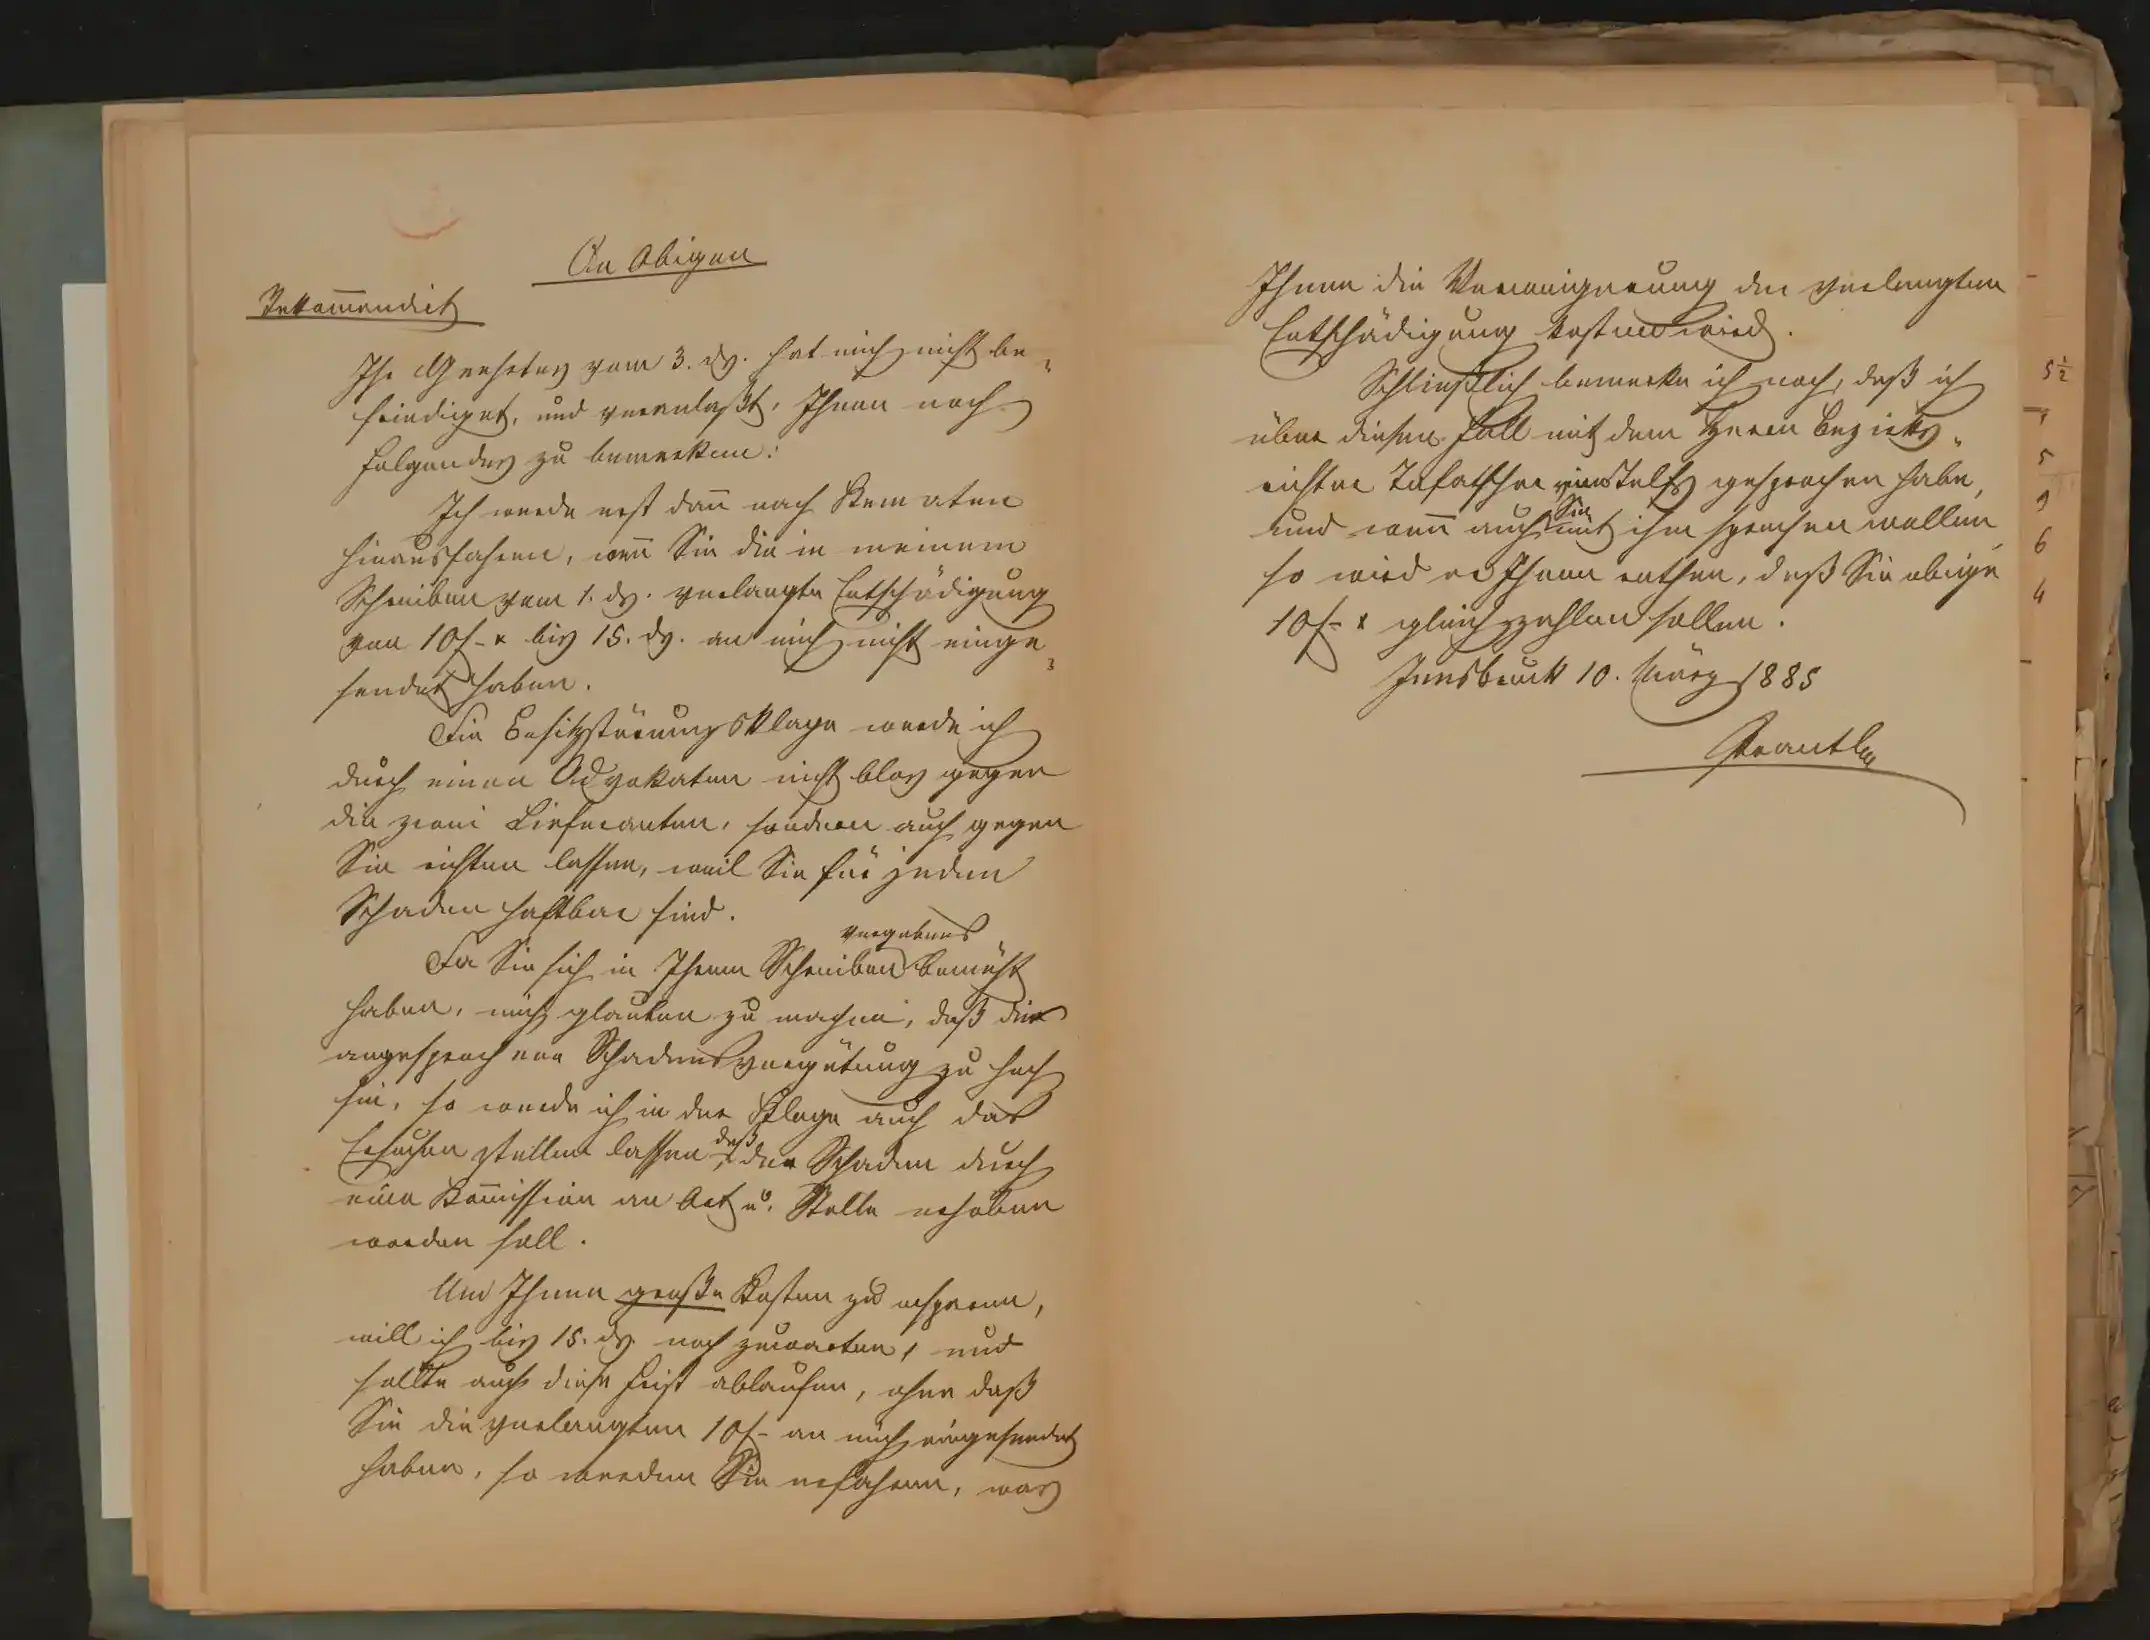 An Obigen
Rekom̅andirt
Ihr Geehrtes vom 3. ds. hat mich nicht be-
friediget, und veranlaßt, Ihnen noch
Folgendes zu bemerken:
Ich werde erst dan̅ nach Kematen
hinausfahren, wen̅ Sie die in meinem
Schreiben vom 1. ds. verlangte Entschädigung
von 10 f - x bis 15. ds. an mich nicht einge-
sendet haben.
Die Besitzstörungsklage werde ich
durch einen Advokaten nicht blos gegen
die zwei Lieferanten, sondern auch gegen
Sie richten lassen, weil Sie für jeden
Schaden haftbar sind.
vergebens
Da Sie sich in Ihrem Schreiben bemüht
haben, mich glauben zu machen, daß die
angesprochene Schadensvergütung zu hoch
sei, so werde ich in der Klage auch das
Ersuchen stellen lassen, daß der Schaden durch
eine Kom̅ission an Ort u. Stelle erhoben
werden soll.
Um Ihnen große Kosten zu ersparen,
will ich bis 15. ds. noch zuwarten, und
sollte auch diese Frist ablaufen, ohne daß
Sie die verlangten 10 f - an mich eingesendet
haben, so werden Sie erfahren, was
Ihnen die Verweigerung der verlangten
Entschädigung kosten wird.
Schließlich bemerke ich noch, daß ich
über diesen Fall mit dem Herrn Bezirks-
richter gesprochen habe,
und wen̅ auch Sie mit ihm sprechen wollen,
so wird er Ihnen rathen, daß Sie obige
10 f - x gleich zahlen sollen.
Innsbruck 10. März 1885
Prantl
5½
5
9
6
4